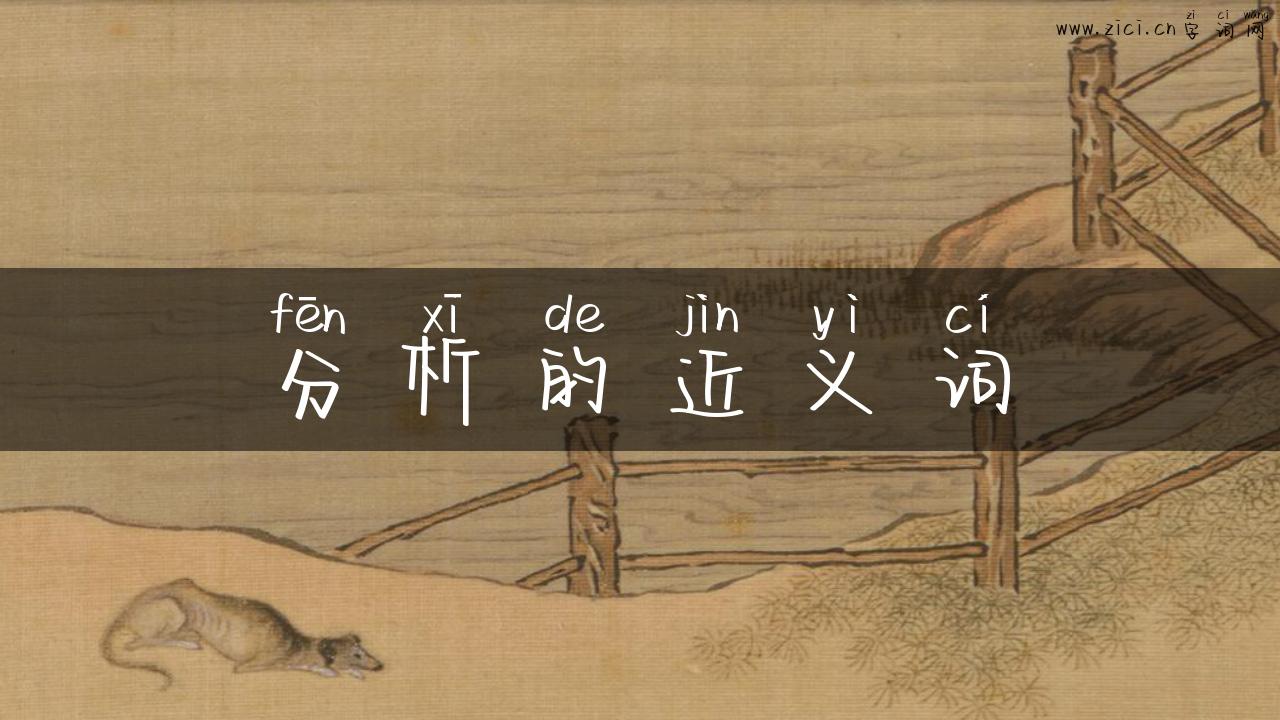 zì cí wǎng
www.zici.cn 字词网
fēn xī de jìn yì cí
分析的近义词